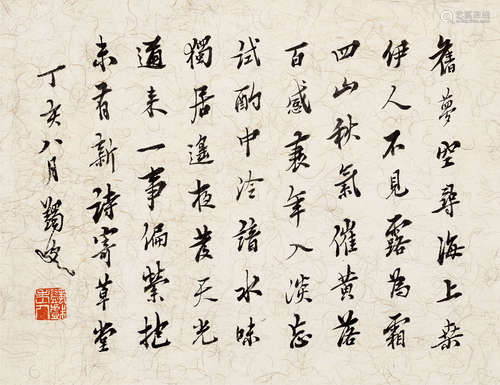 舊夢坐尋海上桑
伊人不見露為霜
四山秋氣催黃落
百感衰年入淡忘
試酌中泠諳水味
獨居遙夜發天光
邇來一事偏縈抱
未有新詩寄草堂
丁亥八月